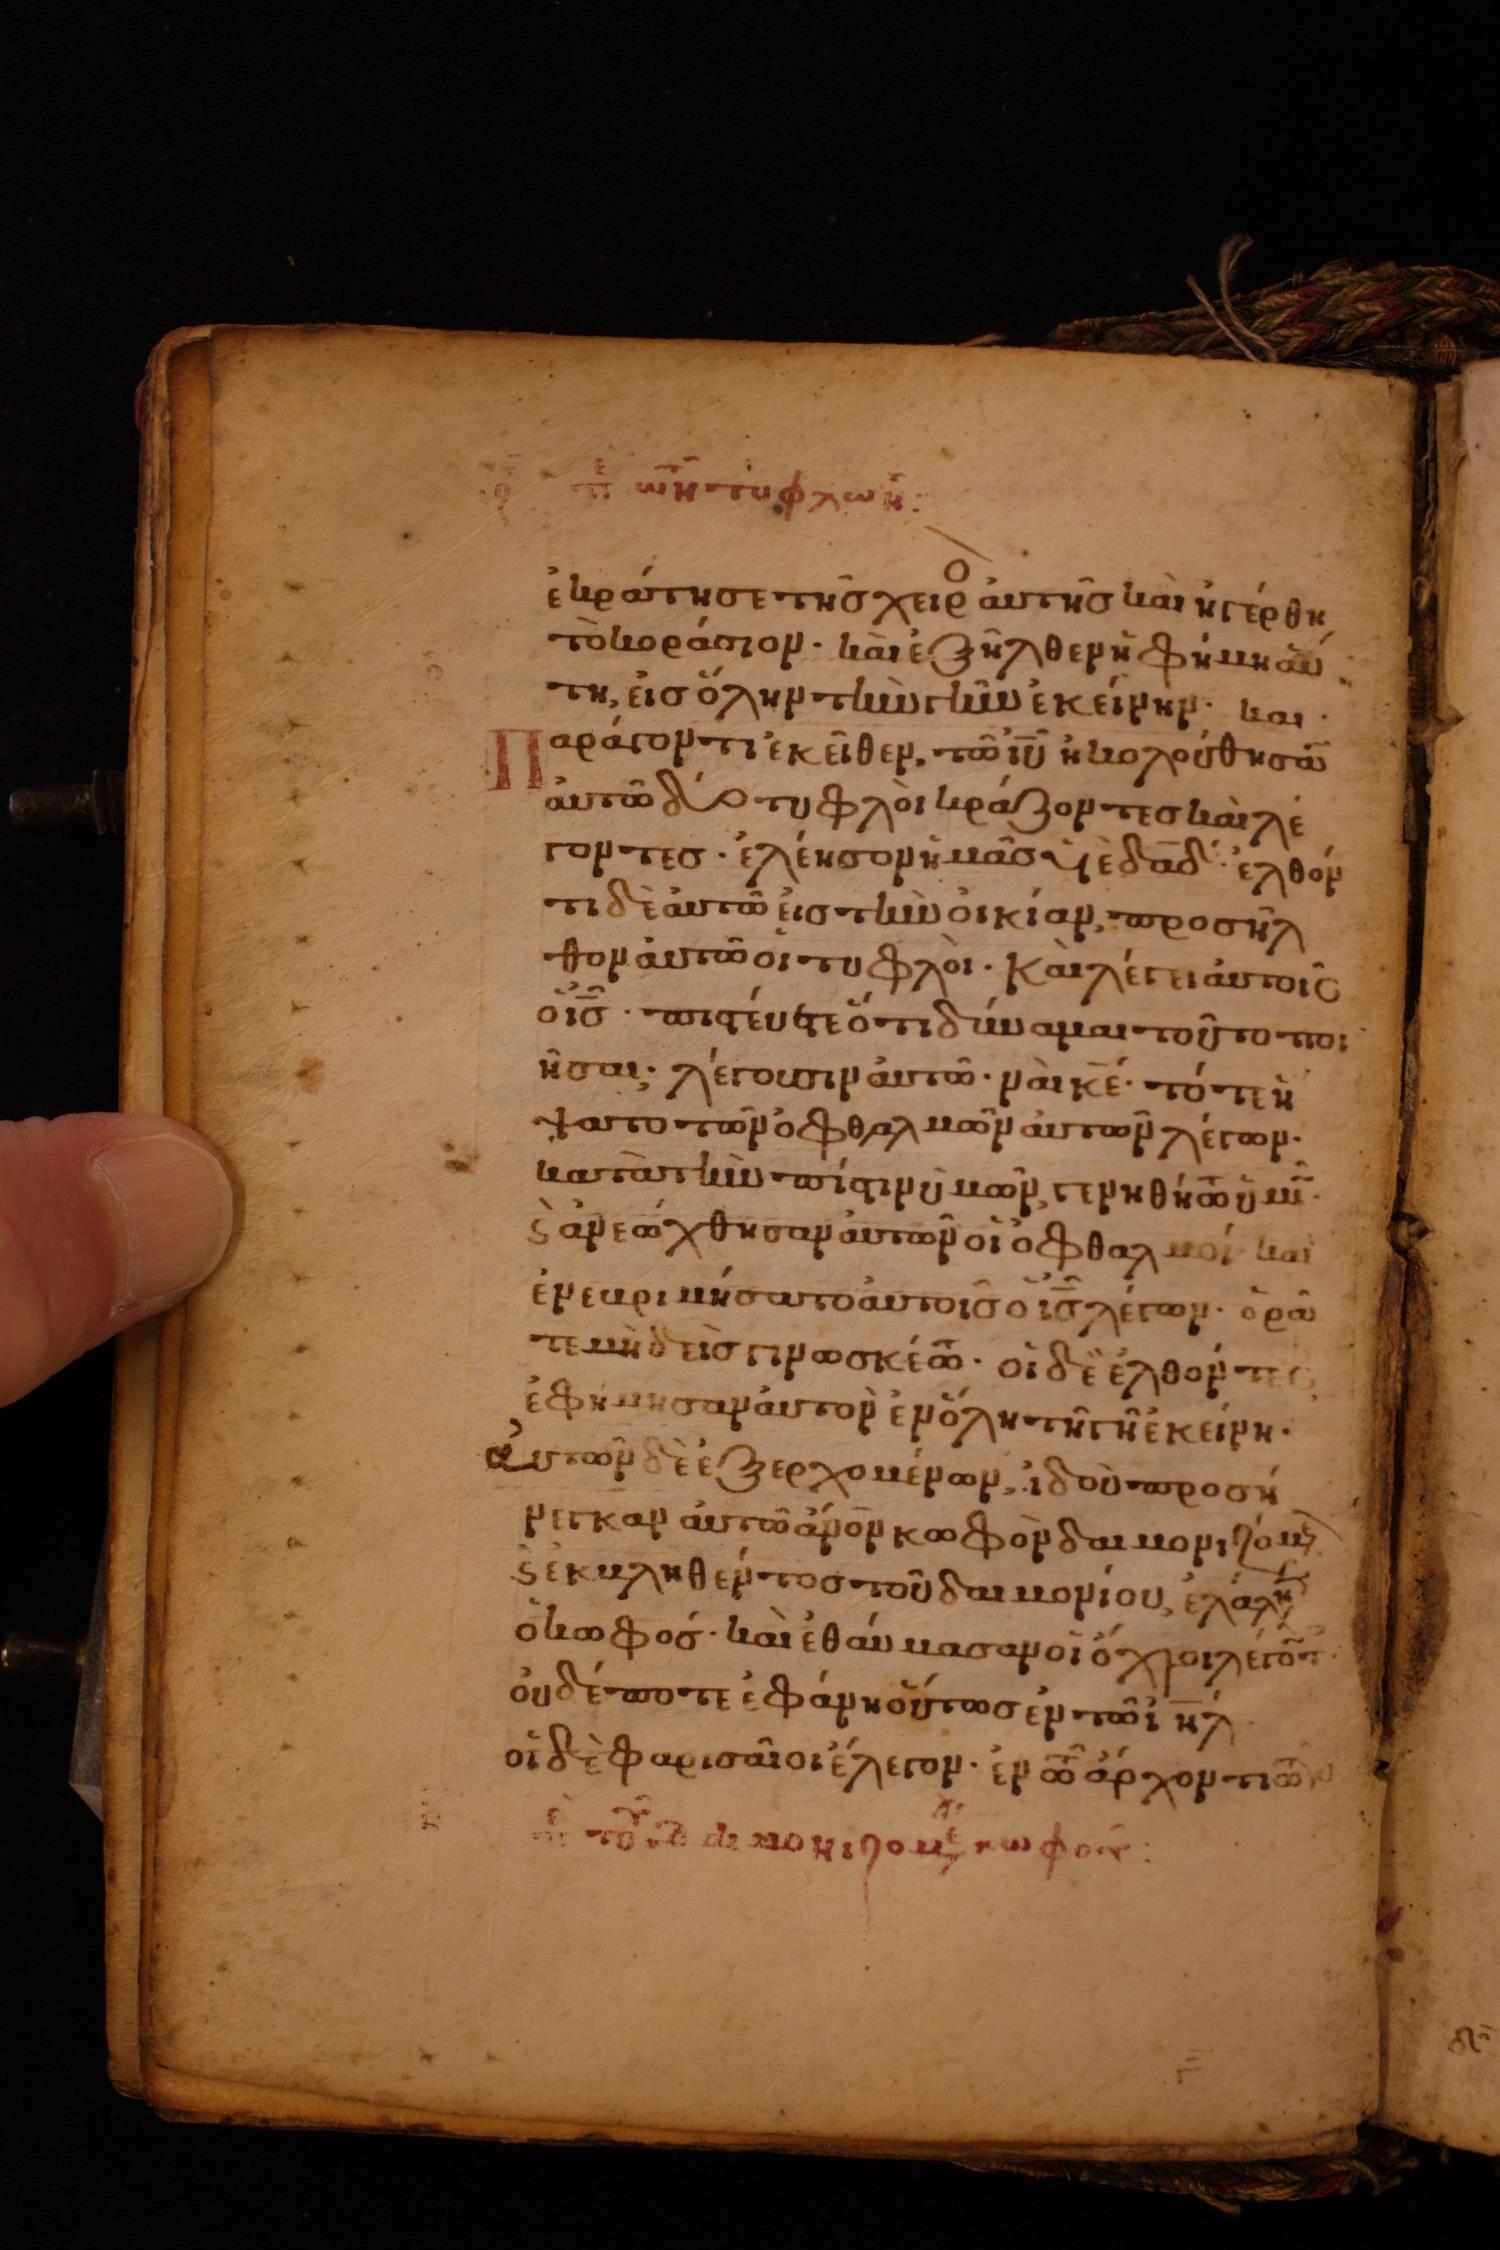 τῶν τυφλῶν:
ἐκράτησε τῆς χειρο ἀυτῆς κὰι ἠγέρθη
τὸ κοράσιον· κὰι ἐξῆλθεν ἡ φήμη ἀύ
τη, εἰσ ὅλην τὴν γῆν ἐκείνην· και
Παράγοντι ἐκεῖθεν, τῶ ἰῦ ἠκολούθησᾱ
ἀυτῶ δύο τυφλὸι κράζοντεσ κὰι λέ
γοντεσ· ἐλέησον ἡμᾶσ ὑὲ δᾱδ· ἐλθόν
τι δὲ ἀυτῶ ἐισ τὴν ὀικίαν, προσῆλ
θον ἀυτῶ ὁι τυφλὸι· κὰι λέγει ἀυτοῖσ
ὁ ἰ̅σ̅· πιστέυετε ὅτι δύναμαι τοῦτο ποι
ῆσαι; λέγουσιν ἀυτῶ· νὰι κ̅ε̅· τότε ἥ
ψατο τῶν ὀφθαλμῶν ἀυτῶν λέγων·
κατὰ τὴν πίστιν ὑμῶν, γενηθήτω ὑμῖ·
ϛ ἀνεώχθησαν ἀυτῶν ὁι ὀφθαλμοί· κὰι
ἐνεβριμήσατο ἀυτοῖσ ὁ ἰ̅σ̅ λέγων· ὁρᾶ
τε μὴδεὶσ γινωσκέτω· ὁι δὲ ἐλθόντεσ
ἐφήμησαν ἀυτὸν ἐν ὅλη τῆ γῆ ἐκείνη·
ἀυτῶν δὲ ἐξερχομένων, ἰδοὺ προσή
νεγκαν ἀυτῶ ἄ̅ν̅ο̅ν̅ κωφὸν δαιμονιζόμε
ϛ ἐκβληθέντοσ τοῦ δαιμονίου, ἐλάλη
ὁ κωφόσ· κὰι ἐθάυμασαν ὁι ὄχλοι λέγοτ
ὀυδέποτε ἐφάνη ὅυτωσ ἐν τῶ ἰ̅η̅λ̅
ὁι δὲ φαρισᾶιοι ἔλεγον· ἐν τῶ ἄρχοντι τῶν
τοῦ δαιμονιζομε κωφοῦ: